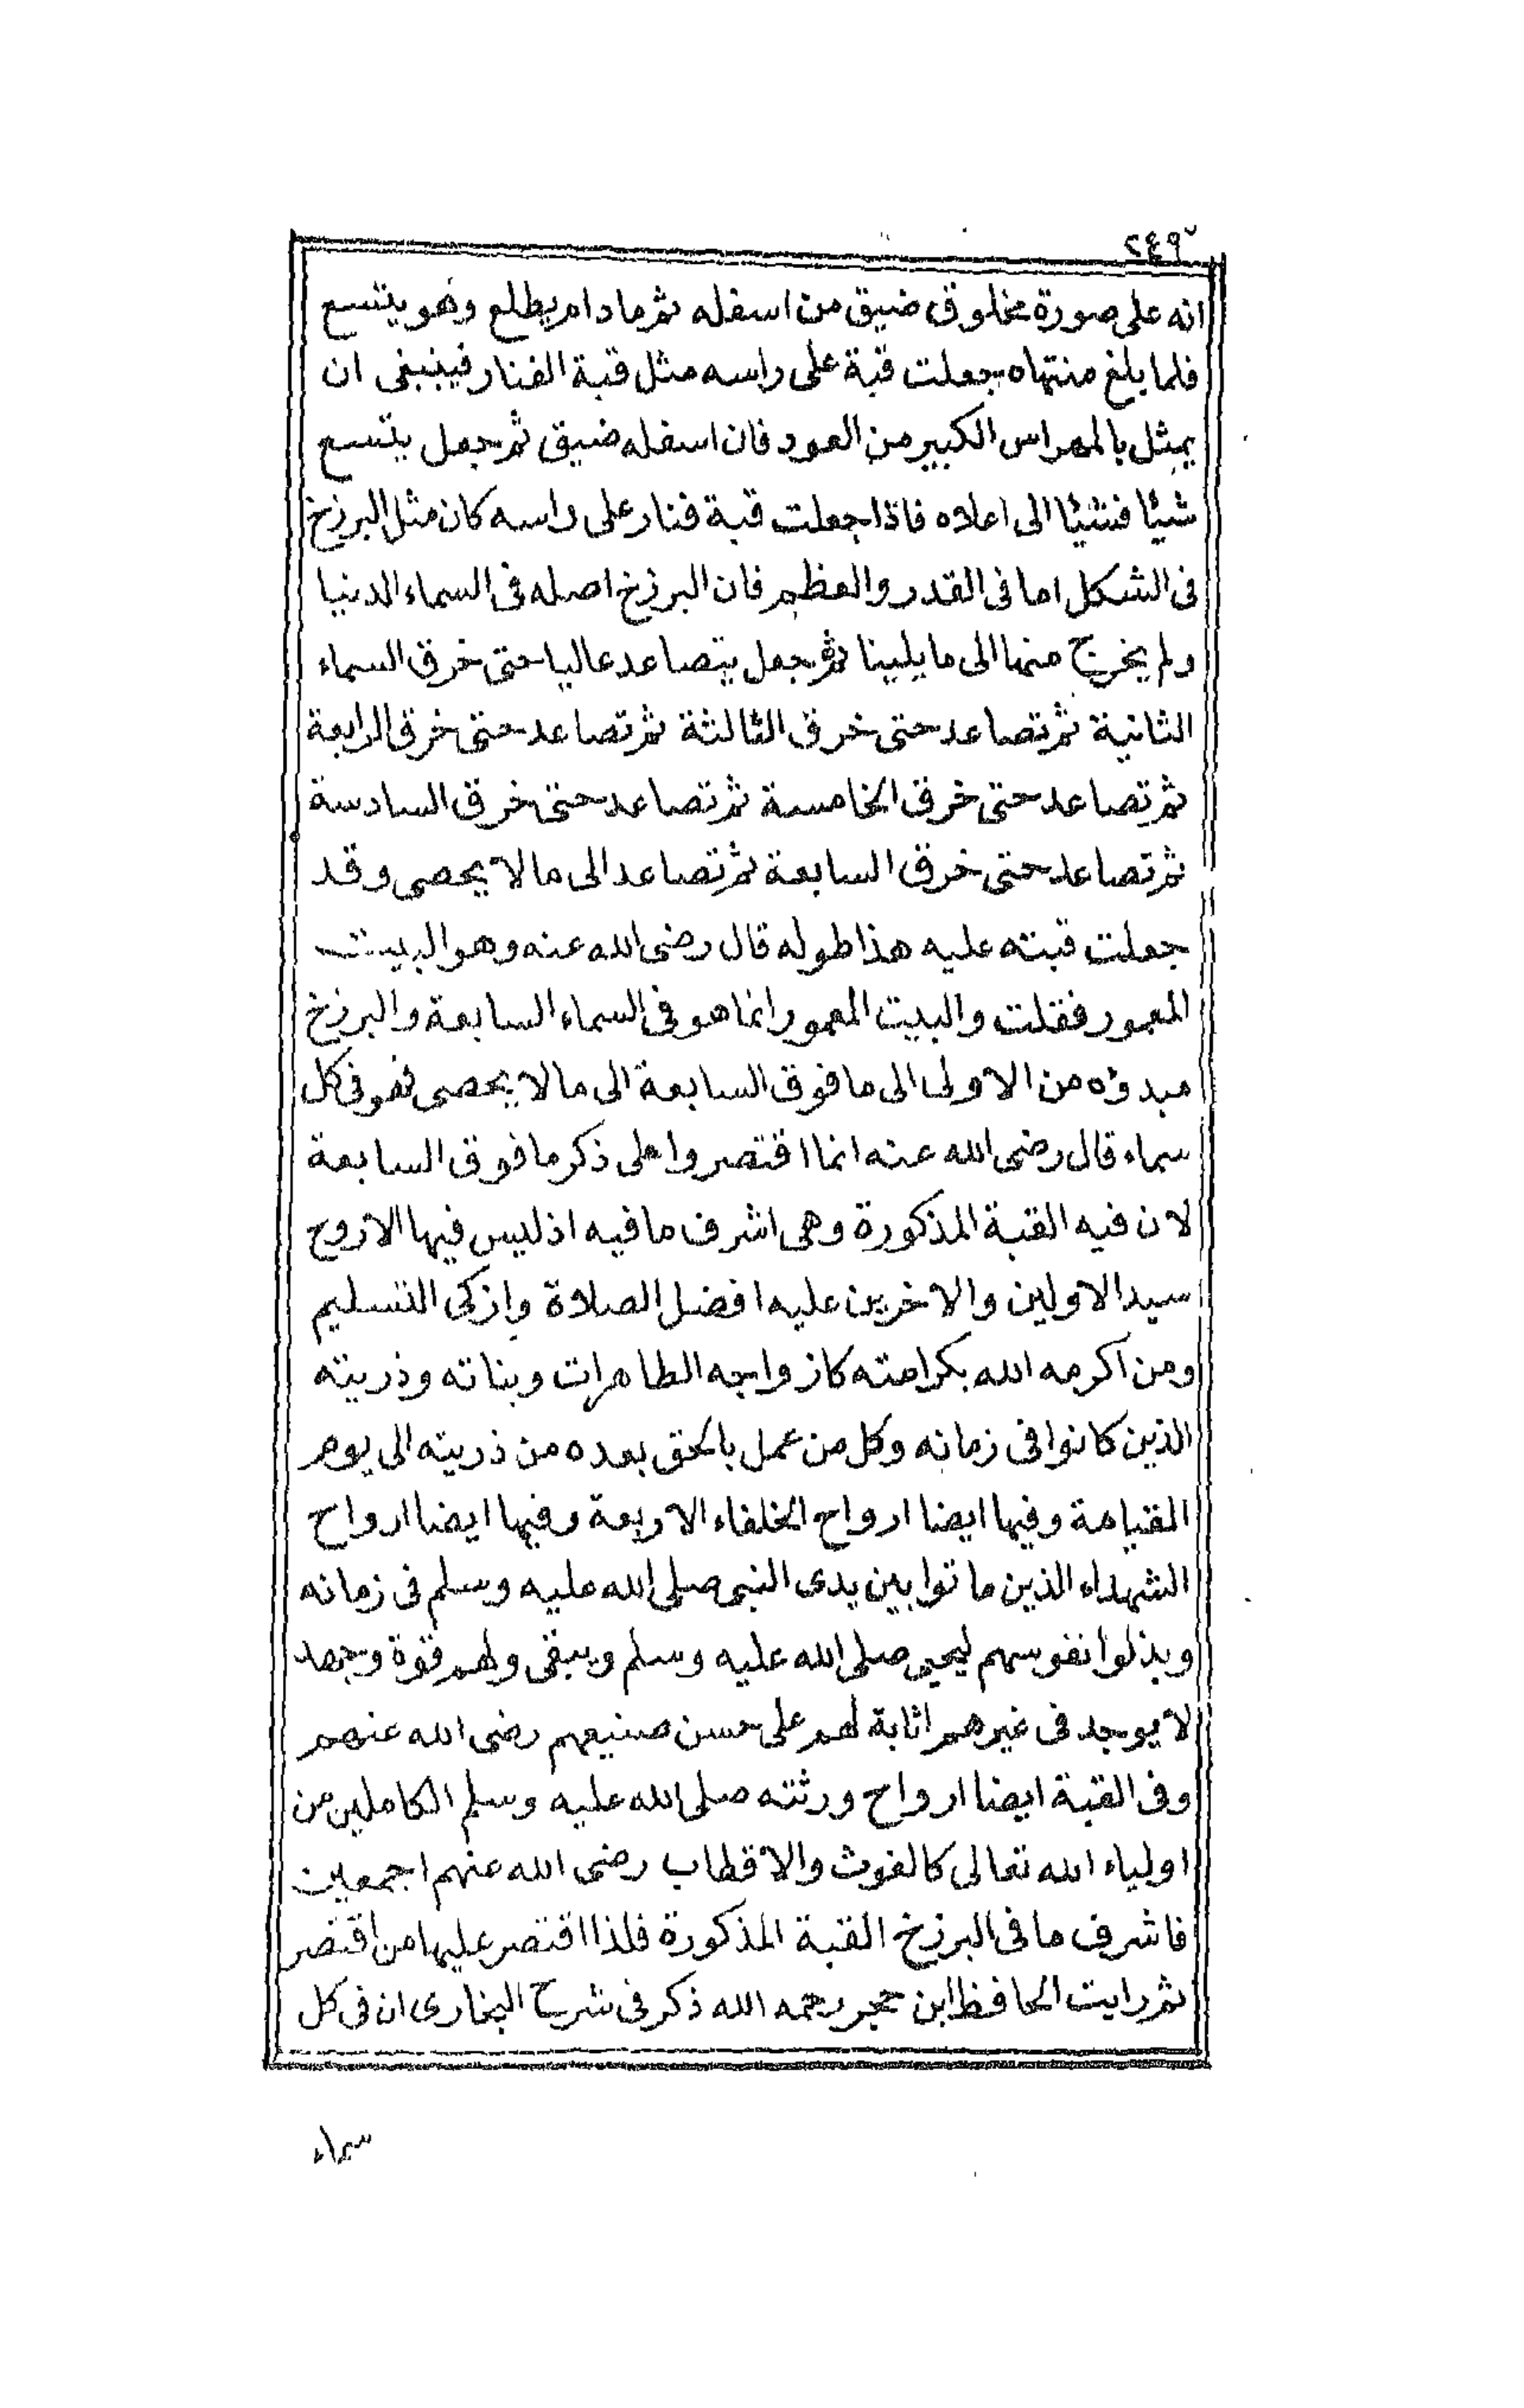 ٢٤٩
انه على صورة مخلوق ضيق من اسفله ثم مادام يطلع وهو يتسع
فلما بلغ منتهاه جعلت قبة على راسه مثل قبة الفنار فينبغى ان
يمثل بالمهراس الكبير من العود فان اسفله ضيق ثم جعل يتسع
شيئا فشيئا الى اعلاه فاذا جعلت قبة فنار على راسه كان مثل البرزخ
فى الشكل اما فى القدر والعظم فان البرزخ اصله فى السماء الدنيا
ولم يخرج منها الى ما يلينا ثم جعل يتصاعد عاليا حتى خرق السماء
الثانية ثم تصاعد حتى خرق الثالثة ثم تصاعد حتى خرق الرابعة
ثم تصاعد حتى خرق الخامسة ثم تصاعد حتى خرق السادسة
ثم تصاعد حتى خرق السابعة ثم تصاعد الى ما لا يحصى وقد
جعلت قبته عليه هذا طوله قال رضى الله عنه وهو البيت
المعمور فقلت والبيت المعمور انما هو فى السماء السابعة والبرزخ
مبدؤه من الاولى الى ما فوق السابعة الى ما لا يحصى فهو فى كل
سماء قال رضى الله عنه انما اقتصروا على ذكر ما فوق السابعة
لان فيه القبة المذكورة وهى اشرف ما فيه اذ ليس فيها الا روح
سيد الاولين والاخرين عليه افضل الصلاة وازكى التسليم
ومن اكرمه الله بكرامته كازواجه الطاهرات وبناته وذريته
الذين كانوا فى زمانه وكل من عمل بالحق بعده من ذريته الى يوم
القيامة وفيها ايضا ارواح الخلفاء الاربعة وفيها ايضا ارواح
الشهداء الذين ماتوا بين يدى النبى صلى الله عليه وسلم فى زمانه
وبذلوا نفوسهم ليحيى صلى الله عليه وسلم ويبقى ولهم قوة وجهد
لا يوجد فى غيرهم اثابة لهم على حسن صنيعهم رضى الله عنهم
وفى القبة ايضا ارواح ورثته صلى الله عليه وسلم الكاملين من
اولياء الله تعالى كالغوث والاقطاب رضى الله عنهم اجمعين
فاشرف ما فى البرزخ القبة المذكورة فلذا اقتصر عليها من اقتصر
ثم رايت الحافظ ابن حجر رحمه الله ذكر فى شرح البخارى ان فى كل
سماء